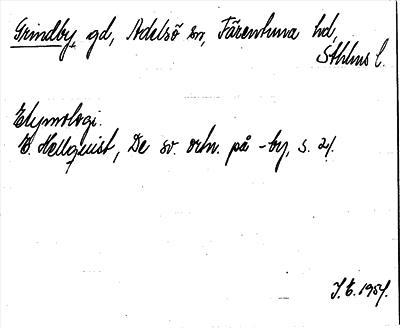 Grindby, gd, Adelsö sn, Färentuna hd,
Sthlms l.
Etymologi.
E. Hellquist, De sv. ortn. på -by, s. 21.
I. E. 1954.